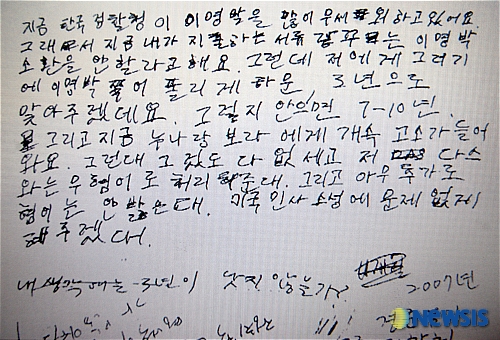 지금 한국 검찰청이 이명박을 많이 무서워하고 있어요.
그래서 지금 내가 지출하는 서류 는 이명박
소환을 안할라고해요. 그런데 저에게 
에 이명박 쪽이 풀리게 하문 3년으로
맞아주겠데요. 그렇지 안으면 7-10년.
그리고지금 누나랑 보라에게 개속 고소가들어
와요. 그런대 그것도 다 없세고 저 다스
와는 무협이로 처리 해준대. 그리고 아무 추가로
협이는 안 는대. 미국 민사소송에 문제 없게
해주겠대.
내 생각에는 3년이 낫지 않을가? 2007년
NEWSIS